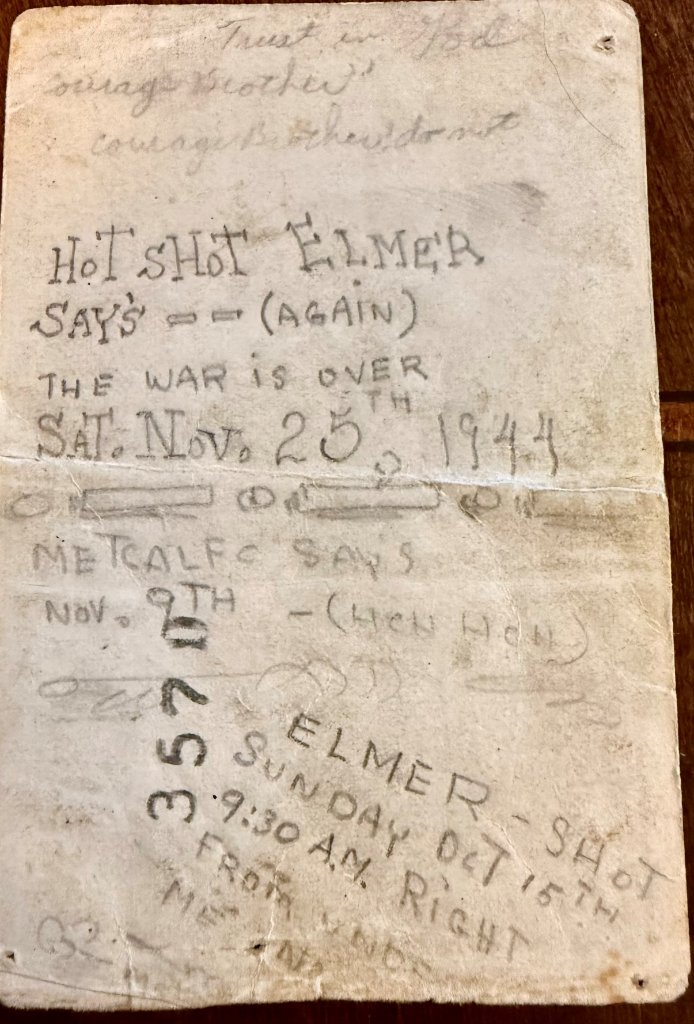 Trust in God
courage Brother"
courage Brother do not
HOT SHOT ELMER
SAY'S -- (AGAIN)
THE WAR IS OVER
SAT. NOV. 25TH, 1944
METCALFE SAYS
NOV. 9TH - (HEH HEH)
3570
ELMER - SHOT
SUNDAY OCT 15TH
9:30 A.M. RIGHT
FROM
ME